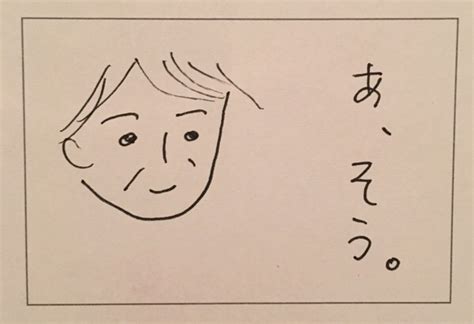 あ、そう。